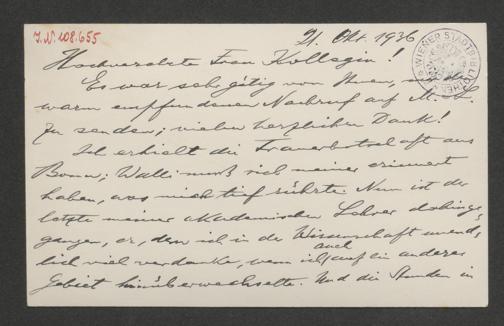 J.N. 108.655
21. Okt. 1936
WIENER STADTBIBLIOTHEK
Hochverehrte Frau Kollegin!
Es war sehr gütig von Ihnen, mir den
warm empfundenen Nachruf auf M. L.
zu senden; vielen herzlichen Dank!
Ich erhielt die Trauerbotschaft aus
Bonn; Walli muß sich meiner erinnert
haben, was mich tief rührte. Nun ist der
letzte meiner akademischen Lehrer dahinge-
gangen, er, dem ich in der Wissenschaft unend-
lich viel verdanke, wenn ich auch auf ein anderes
Gebiet hinüberwechselte. Und die Stunden in